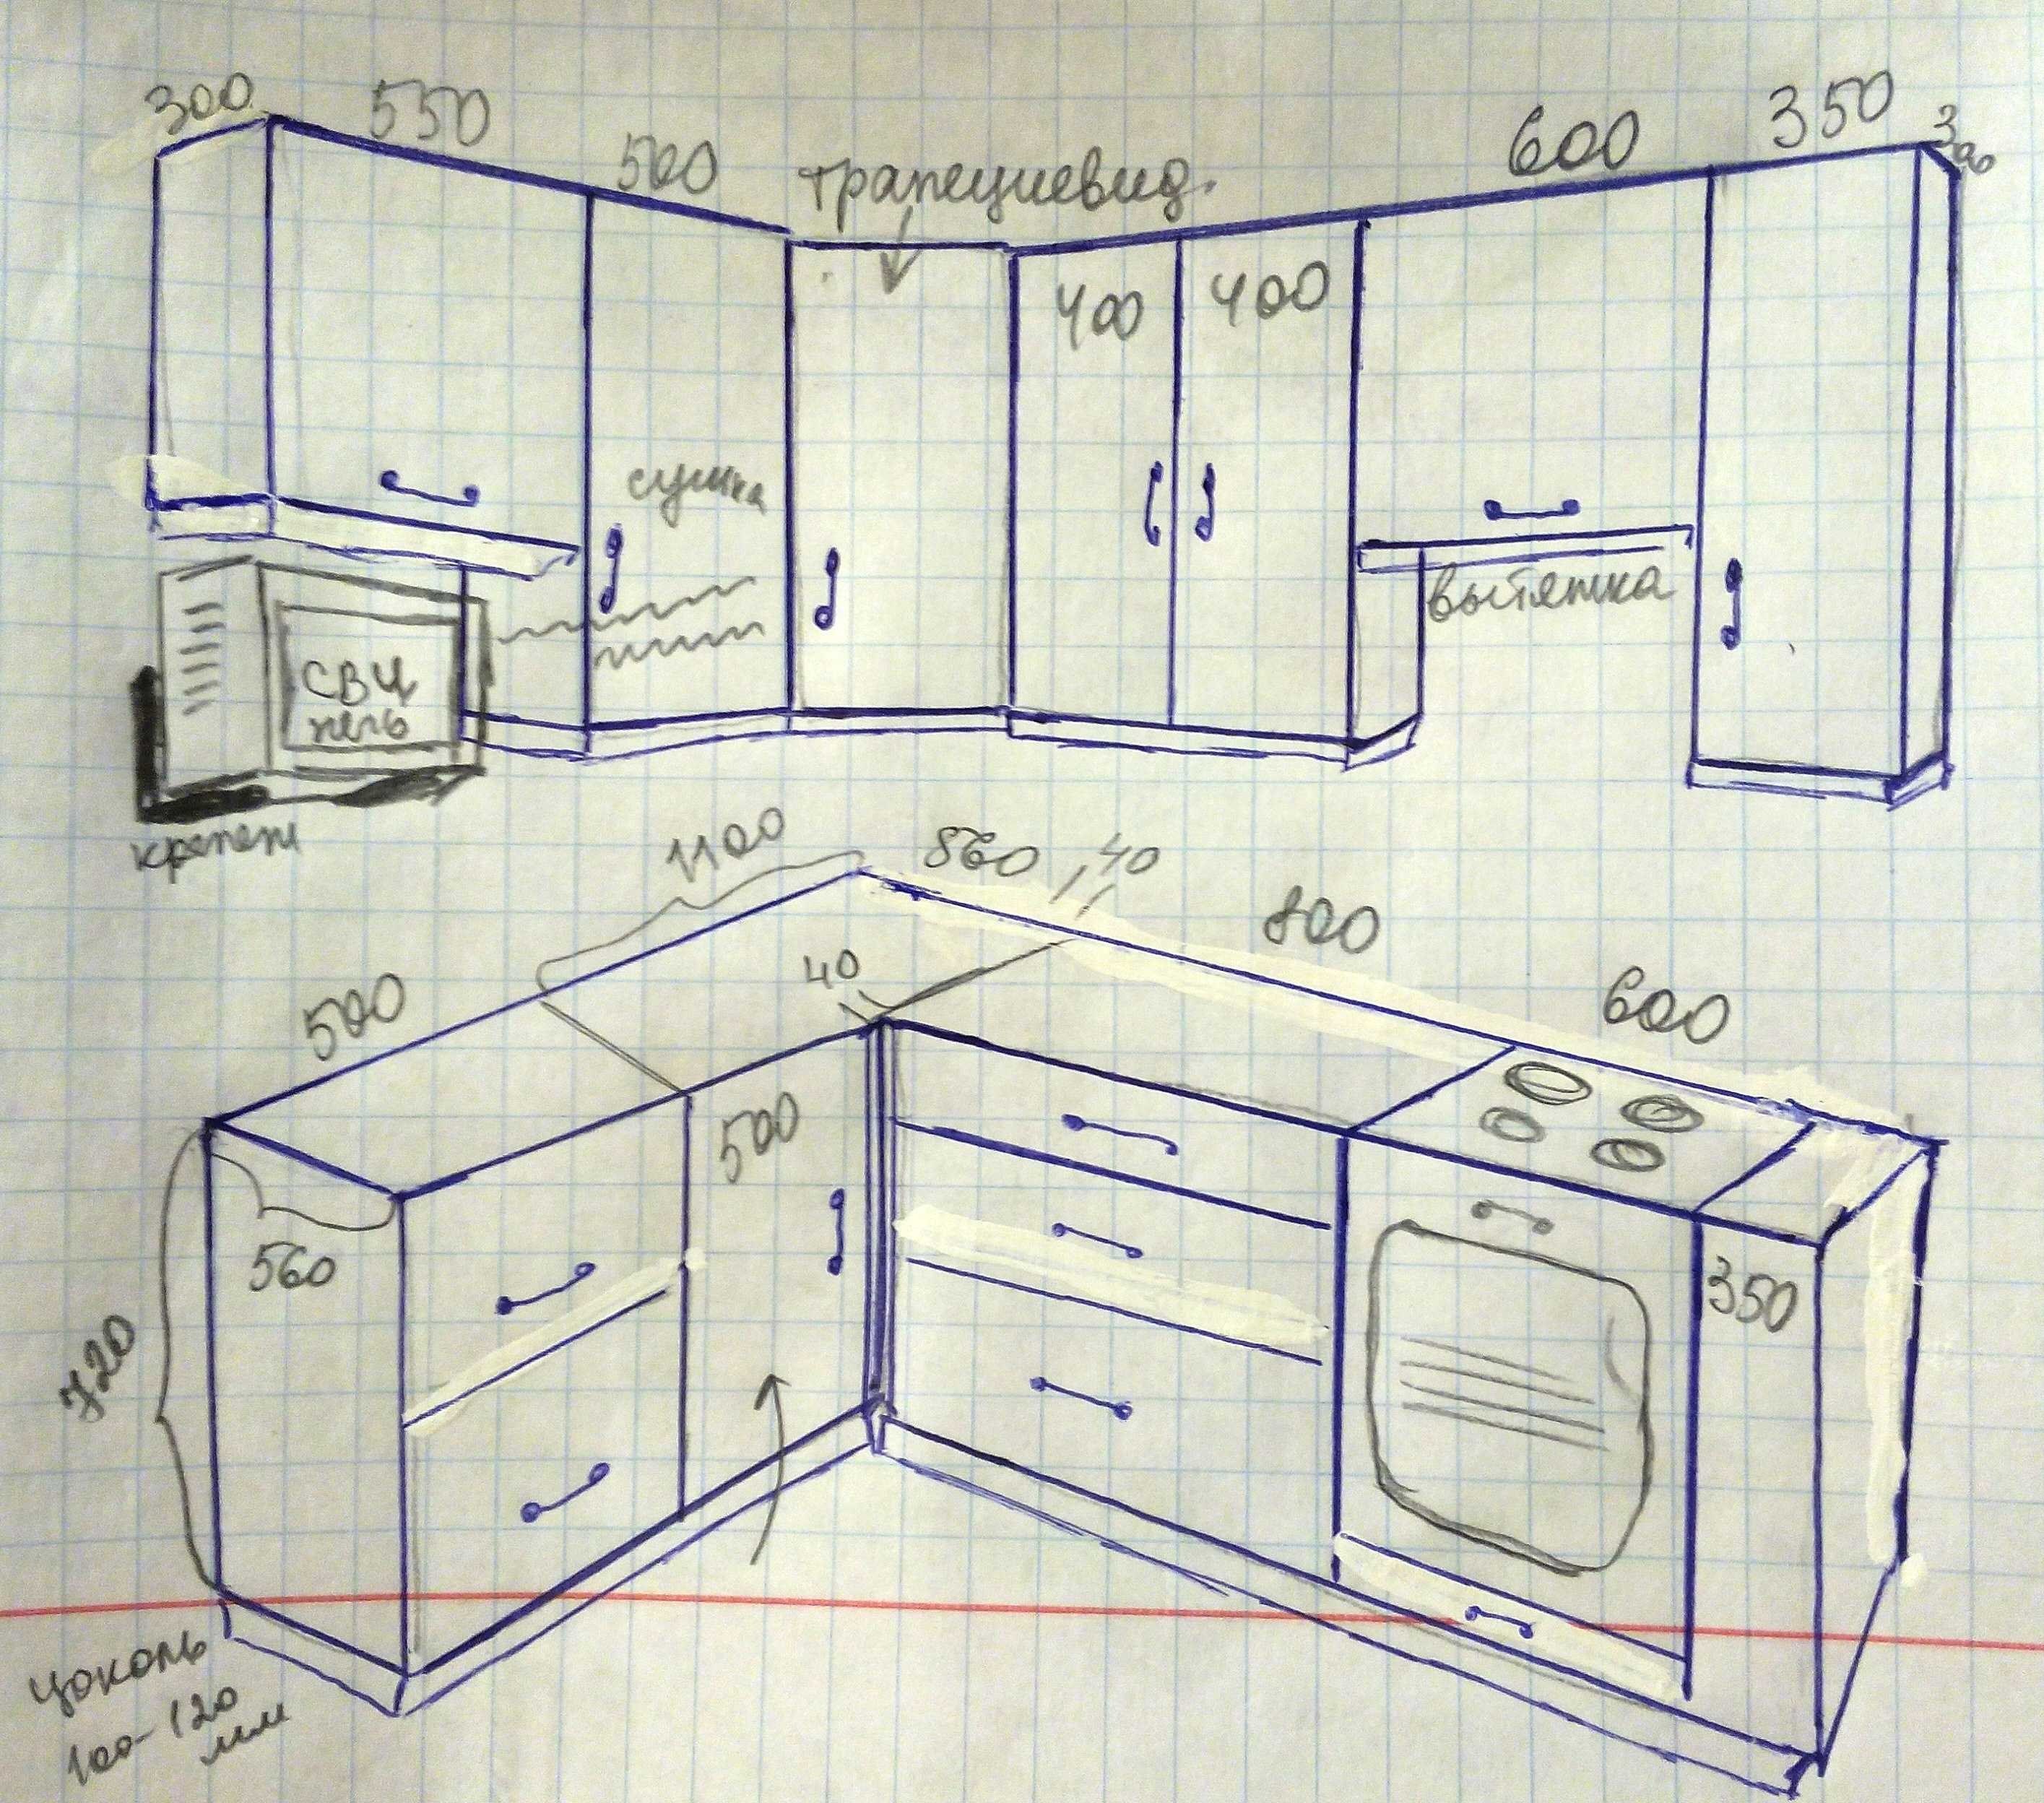 300
550
500
трапециевид.
600
350
300
400
400
сушка
вытяжка
СВЧ
печь
крепеж
1100
860
40
800
600
500
40
500
560
350
720
цоколь
100-120
мм